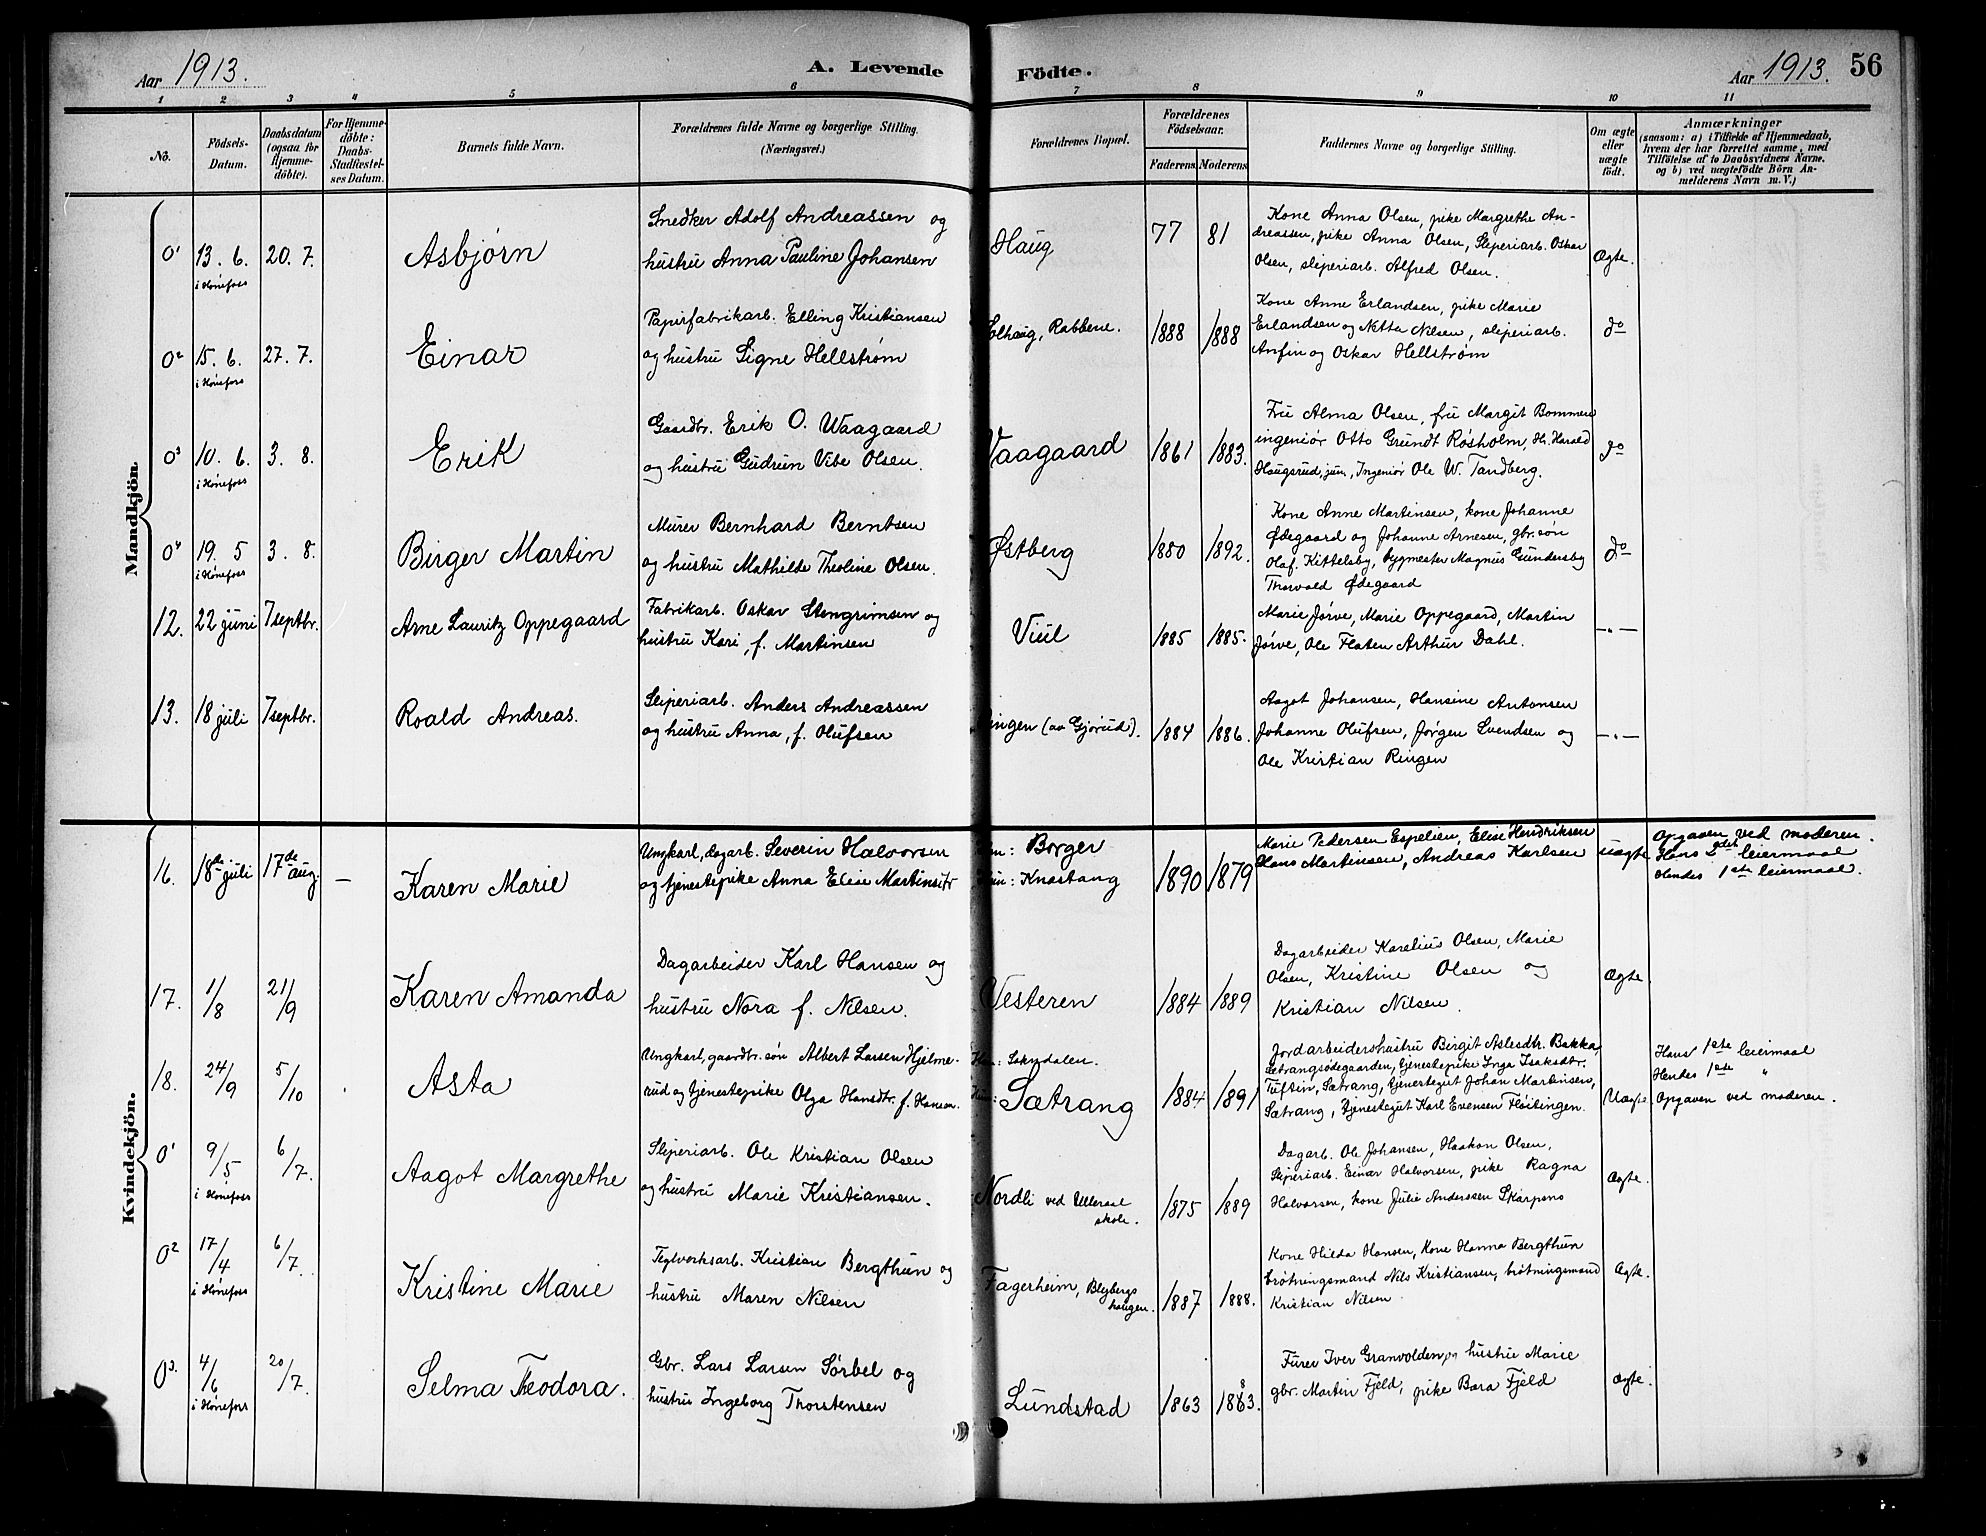 Aar 1913.
A. Levende
Födte.
Aar 1913. 56
1 2 3 4 5 6 7 8 9 10 11
No.
Födsels-
Datum.
Daabsdatum
(ogsaa for
Hjemme-
döbte).
For Hjemme-
döbte:
Daabs-
Stadfæstel-
ses Datum.
Barnets fulde Navn.
Forældrenes fulde Navne og borgerlige Stilling.
(Næringsvei.)
Forældrenes Bopæl.
Forældrenes
Födselsaar.
Faderens. Moderens.
Faddernes Navne og borgerlige Stilling.
Om ægte
eller
uægte
født.
Anmærkninger
(saasom: a) i Tilfælde af Hjemmedaab,
hvem der har forrettet samme, med
Tilföielse af to Daabsvidners Navne.
og b) ved uægtefödte Börn An-
melderens Navn m. V.)
Mandkjön.
0¹ 13. 6. 20. 7.
i Hönefoss
Asbjørn
Snedker Adolf Andreassen og
hustru Anna Pauline Johansen
Haug
77 81
Kone Anna Olsen, pike Margrethe An-
dreassen, pike Anna Olsen, Sliperiarb. Oskar
Olsen, sliperiarb. Alfred Olsen.
Ægte.
0² 15. 6. 27. 7.
i Hönefoss
Einar
Papirfabrikarb. Elling Kristiansen
og hustru Signe Hellstrøm
Solhaug, Rabbene.
1888 1888
Kone Anne Erlandsen, pike Marie
Erlandsen og Netta Nilsen, sliperiarb.
Anfin og Oskar Hellstrøm
do
0³ 10. 6. 3. 8.
i Hönefoss
Erik
Gaardbr. Erik O. Waagaard
og hustru Gudrun Vibe Olsen.
Vaagaard
1861 1883.
Fru Alma Olsen, fru Margit Bommen
ingeniør Otto Grundt Røsholm, Hr. Harald
Haugsrud, jun, Ingeniør Ole W. Tandberg.
do
0⁴ 19. 5 3. 8.
i Hönefoss
Birger Martin
Murer Bernhard Berntsen
og hustru Mathilde Theoline Olsen.
Østberg
1880 1892.
Kone Anne Martinsen, kone Johanne
Ødegaard og Johanne Arnesen, gbr. søn
Olaf Kittelsby, bygmester Magnus Gundersby
Thorvald Ødegaard
do
12. 22 juni 7 septbr.
Arne Lauritz Oppegaard
Fabrikarb. Oskar Stengrimsen og
hustru Kari, f. Martinsen
Viul
1885 1885.
Marie Jørve, Marie Oppegaard, Martin
Jørve, Ole Flaten Arthur Dahl.
—〃—
13. 18 juli 7 septbr.
Roald Andreas.
Sliperiarb. Anders Andreassen
og hustru Anna, f. Olufsen
Ringen (av Gjørud).
1884 1886.
Aagot Johansen, Hansine Antonsen
Johanne Olufsen, Jørgen Svendsen og
Ole Kristian Ringen
—〃—
Kvindekjön.
16. 18de juli 17de aug. —
Karen Marie
Ungkarl, dagarb. Severin Halvorsen
og tjenestepike Anna Elise Martinsdtr
Borger
Hun: Knastang
1890 1879
Marie Pedersen Espelien, Elise Hendriksen
Hans Martinsen, Andreas Karlsen
uægte
Opgaven ved moderen.
Hans 2det leiermaal
Hendes 1ste leiermaal.
17. 1/8 21/9
Karen Amanda
Dagarbeider Karl Hansen og
hustru Nora f. Nilsen.
Vesteren
1884 1889
Dagarbeider Karelius Olsen, Marie
Olsen, Kristine Olsen og
Kristian Nilsen.
Ægte.
18. 24/9 5/10
Asta
Ungkarl, gaardbr. søn Albert Larsen Hjelme-
rud og tjenestepike Olga Hansdtr. f. Hansen.
Han: Sokndalen.
Hun: Sætrang
1884 1891
Jordarbeiderhustru Birgit Aslesdtr. Bakka,
Sætrangsødegaarden, tjenestepike Inga Isaksdtr.
Tuftin, Sætrang, tjenestegut Johan Martinsen,
Sætrang, tjenestegut Karl Evensen Fløitingen.
Uægte
Hans 1ste leiermaal
Hendes 1ste 〃
Opgaven ved moderen.
0¹ 9/5 6/7.
i Hönefoss
Aagot Margrethe
Sliperiarb. Ole Kristian Olsen
og hustru Marie Kristiansen.
Nordli ved Ulleraal
skole.
1875 1889
Dagarb. Ole Johansen, Haakon Olsen,
Sliperiarb. Einar Halvorsen, pike Ragna
Halvorsen, kone Julie Anderssen Skarpsno
Ægte.
0² 17/4 6/7.
i Hönefoss
Kristine Marie
Teglverksarb. Kristian Bergthun og
hustru Maren Nilsen
Fagerheim, Blybergs
haugen.
1887 1888.
Kone Hilda Hansen, Kone Hanna Bergthun
brøtningsmand Nils Kristiansen, brøtningsmand
Kristian Nilsen.
Ægte.
0³. 4/6 20/7.
i Hönefoss
Selma Theodora.
Gbr. Lars Larsen Sørbel og
hustru Ingeborg Thorstensen
Lundstad
1863 1883.
Furer Iver Granvolden og hustru Marie
gbr. Martin Fjeld, pike Bara Fjeld
Ægte.